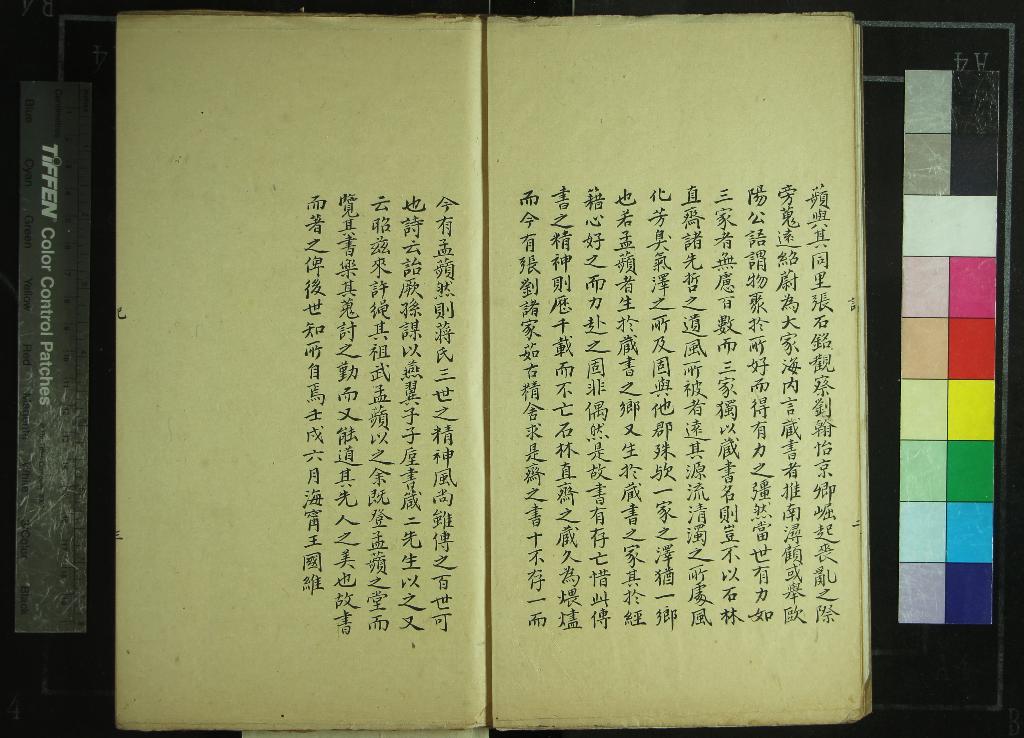 蘋與其同里張石銘觀察劉翰怡京卿崛起喪亂之際
旁蒐遠紹蔚為大家海内言藏書者推南潯顧或舉歐
陽公語謂物聚於所好而得有力之彊然當世有力如
三家者無慮百數而三家獨以藏書名則豈不以石林
直齋諸先哲之遺風所被者遠其源流清濁之所處風
化芳臭氣澤之所及固與他郡殊歟一家之澤猶一鄉
也若孟蘋者生於藏書之鄉又生於藏書之家其於經
籍心好之而力赴之固非偶然是故書有存亡惜此傳
書之精神則歷千載而不亡石林直齋之藏久為煨燼
而今有張劉諸家茹古精舍求是齋之書十不存一而
記
三
今有孟蘋然則蔣氏三世之精神風尚雖傳之百世可
也詩云詒厥孫謀以燕翼子子垕書箴二先生以之又
云昭茲來許繩其祖武孟蘋以之余既登孟蘋之堂而
覽其書樂其蒐討之勤而又能道其先人之美也故書
而著之俾後世知所自焉壬戌六月海甯王國維
記
三
TIFFEN Color Control Patches
Blue
Cyan
Green
Yellow
Red
Magenta
White
3/Color
Black